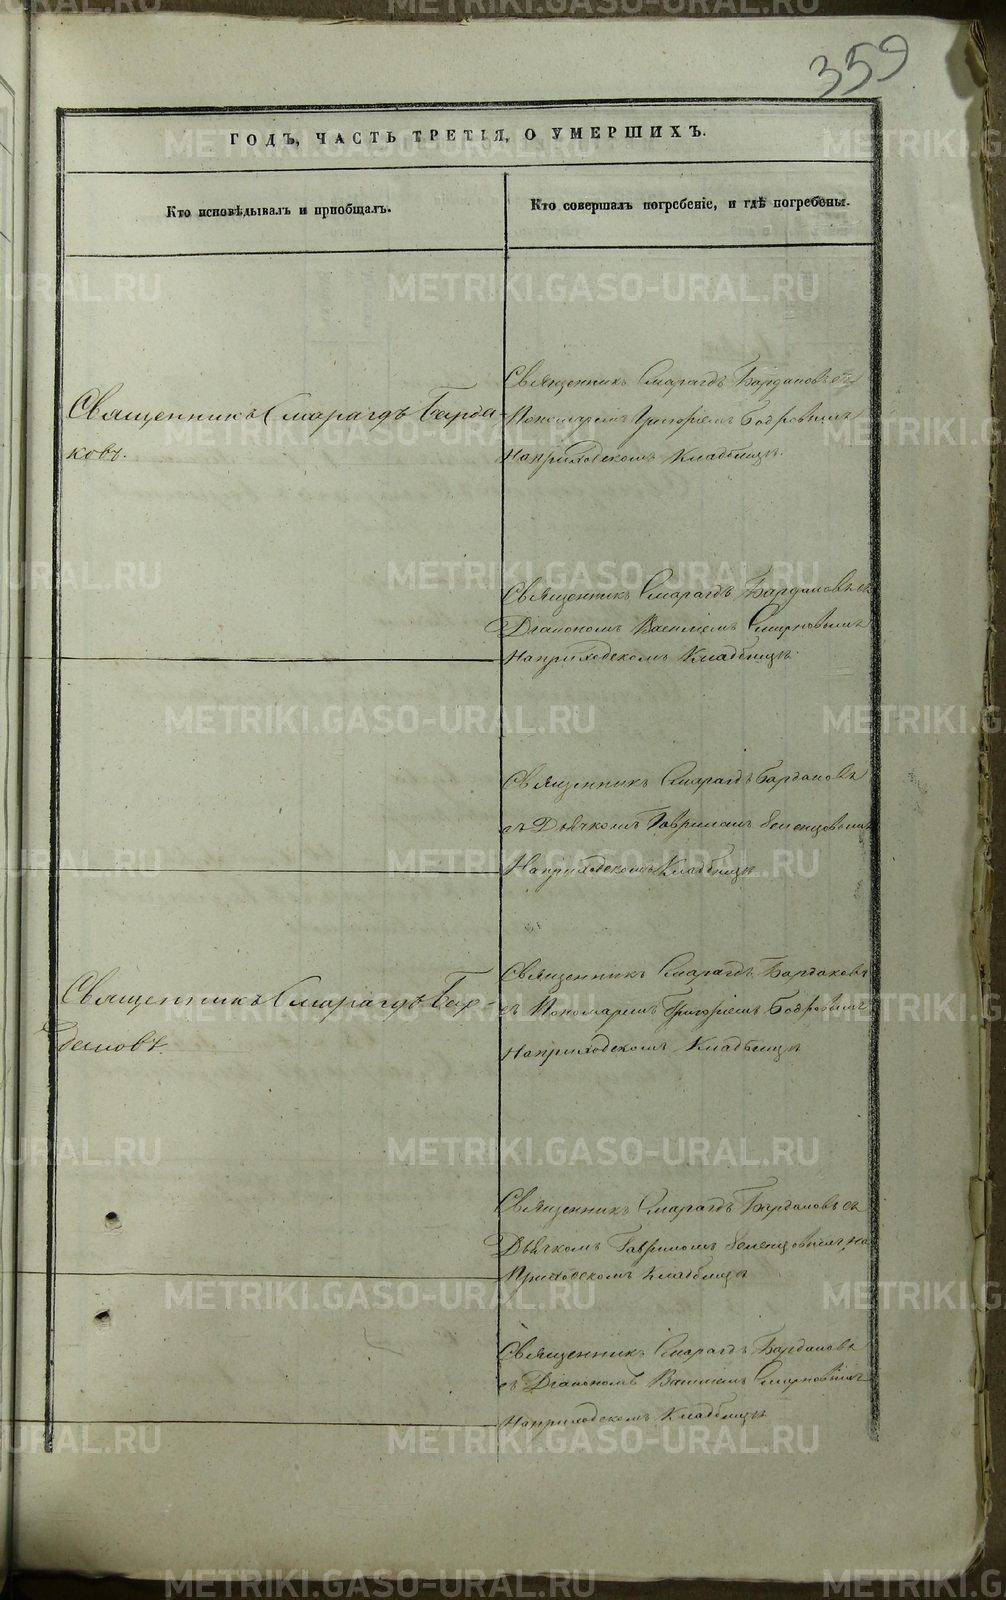 359
ГОДЪ, ЧАСТЬ ТРЕТІЯ, О УМЕРШИХЪ.
Кто исповѣдывалъ и пріобщалъ.
Кто совершалъ погребеніе, и гдѣ погребены.
Священникъ Смарагдъ Барда-
ковъ.
Священникъ Смарагдъ Бардаковъ съ
Пономаремъ Григоріемъ Бобровымъ
На приходскомъ Кладбищѣ.
Священникъ Смарагдъ Бардаковъ съ
Діакономъ Василіемъ Смирновымъ
На приходскомъ Кладбищѣ.
Священникъ Смарагдъ Бардаковъ
съ Дьячкомъ Гавриломъ
На приходскомъ Кладбищѣ
Священникъ Смарагдъ Бар-
даковъ.
Священникъ Смарагдъ Бардаковъ
съ Пономаремъ Григоріемъ Бобровымъ
На приходскомъ Кладбищѣ
Священникъ Смарагдъ Бардаковъ съ
Дьячкомъ Гавриломъ на
Приходскомъ Кладбищѣ
Священникъ Смарагдъ Бардаковъ
съ Діакономъ Василіемъ Смирновымъ
На приходскомъ Кладбищѣ
METRIKI.GASO-URAL.RU